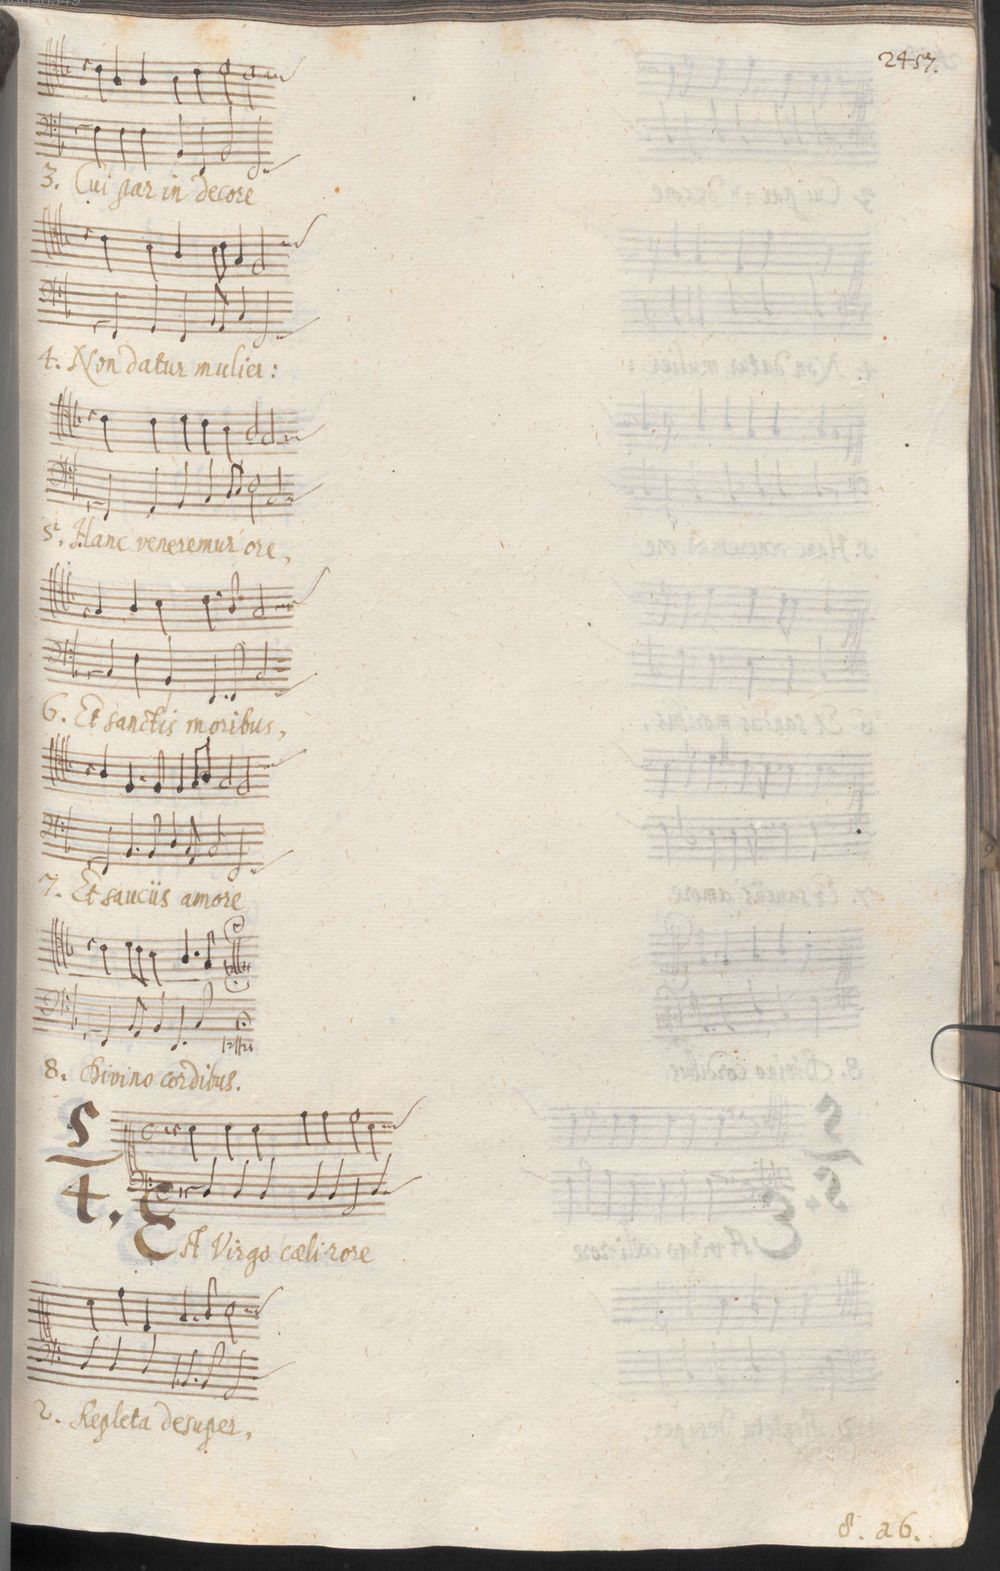 2457.
3. Cui par in decore
4. Non datur mulier:
5. Hanc veneremur ore,
6. Et sanctis moribus,
7. Et sauciis amore
8. Divino cordibus.
5
4.
EA Virgo cæli rore
2. Repleta desuper,
8. a6.